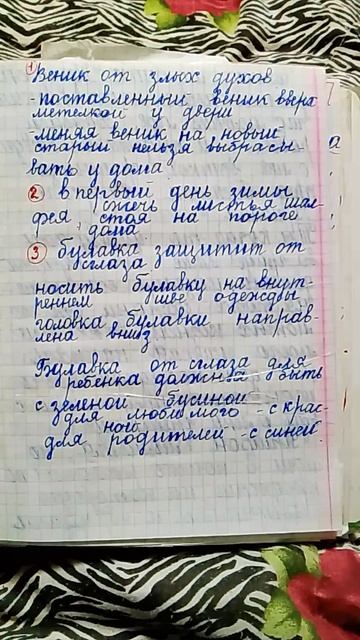 1 Веник от злых духов
- поставленный веник вверх
метелкой у двери
- меняя веник на новый
старый нельзя выбрасы-
вать у дома
2 в первый день зимы
сжечь листья шал-
фея стоя на пороге
дома
3 булавка защитит от
сглаза
носить булавку на внут-
реннем шве одежды
головка булавки направ-
лена вниз
Булавка от сглаза для
ребенка должна быть
с зеленой бусиной
для любимого - с крас-
ной
для родителей - с синей.
а